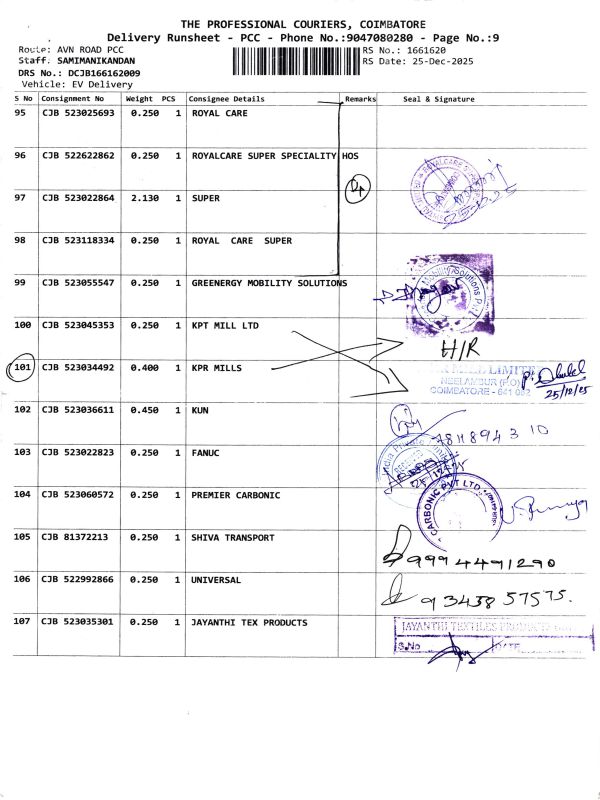 THE PROFESSIONAL COURIERS, COIMBATORE
Delivery Runsheet - PCC - Phone No.:9047080280 - Page No.:9
Route: AVN ROAD PCC RS No.: 1661620
Staff: SAMIMANIKANDAN RS Date: 25-Dec-2025
DRS No.: DCJB166162009
Vehicle: EV Delivery
S No Consignment No Weight PCS Consignee Details Remarks Seal & Signature
95 CJB 523025693 0.250 1 ROYAL CARE
96 CJB 522622862 0.250 1 ROYALCARE SUPER SPECIALITY HOS
97 CJB 523022864 2.130 1 SUPER
98 CJB 523118334 0.250 1 ROYAL CARE SUPER
99 CJB 523055547 0.250 1 GREENERGY MOBILITY SOLUTIONS
Mobility Solutions Pvt
100 CJB 523045353 0.250 1 KPT MILL LTD
H/R
101 CJB 523034492 0.400 1 KPR MILLS
MILL LIMITE
NEELAMBUR (P.O)
COIMBATORE - 641 062
25/12/25
102 CJB 523036611 0.450 1 KUN
7811894310
103 CJB 523022823 0.250 1 FANUC
104 CJB 523060572 0.250 1 PREMIER CARBONIC
CARBONIC PVT LTD
105 CJB 81372213 0.250 1 SHIVA TRANSPORT
9994491290
106 CJB 522992866 0.250 1 UNIVERSAL
93438 57575.
107 CJB 523035301 0.250 1 JAYANTHI TEX PRODUCTS
JAYANTHI TEXTILES PRODUCTS
S.No DATE